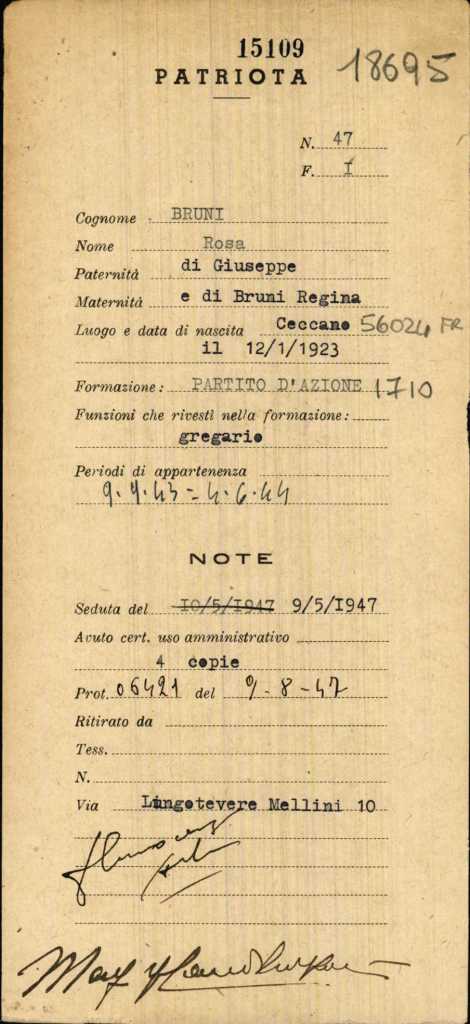 15109
PATRIOTA 18695
N. 47
F. I
Cognome BRUNI
Nome Rosa
Paternità di Giuseppe
Maternità e di Bruni Regina
Luogo e data di nascita Ceccano 56024 FR
il 12/1/1923
Formazione: PARTITO D'AZIONE 1710
Funzioni che rivestì nella formazione:
gregario
Periodi di appartenenza
9.9.43 = 4.6.44
NOTE
Seduta del 10/5/1947 9/5/1947
Avuto cert. uso amministrativo
4 copie
Prot. 06421 del 9-8-47
Ritirato da
Tess.
N.
Via Lungotevere Mellini 10